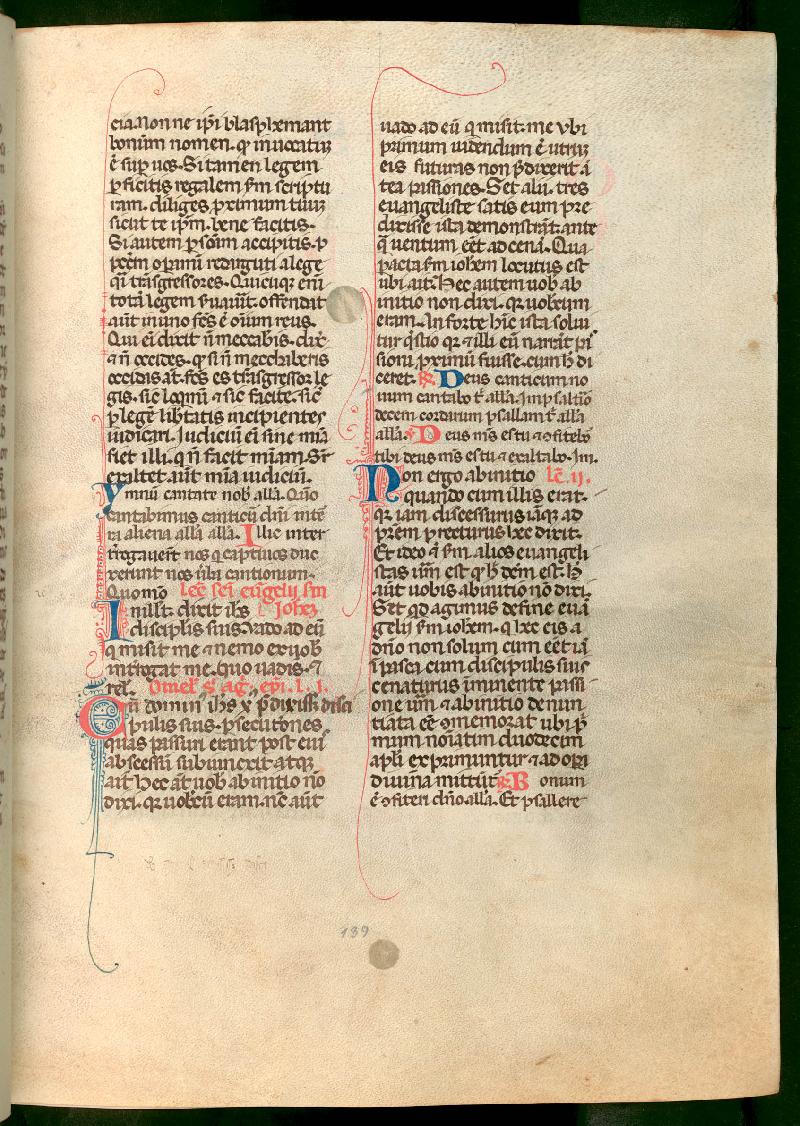 cia. Non ne ip̄i blasphemant
bonum nomen. qđ inuocatū
ē sup̱ uos. Si tamen legem
ꝑficitis regalem s̄m sc̄ptu
ram. diliges proximum tuuȝ
sicut te ip̄m. bene facitis.
Si autem ꝑsōm accipitis. p
legē toti
totā legem ẜuauīt. offendat
aūt in uno fc̄s ē oīum reus.
Qui eī dixit ñ meccabis. dix̄
⁊ ñ occides. qđ si ñ mecchaberis
occidis aūt. fc̄s es trāsgressor le
gis. sic̄ loq̄mī ⁊ sic̄ facite. sic̄
ꝑ legē lib̄tatis incipientes
iudicari. Judiciū eī sine mīa
fiet illi. q̄ ñ facit mīam. Sr̄
exaltet aūt mīa iudiciū.
Ymnū cantate nob̄ alla. Q̄uō
cantabimus canticū dn̄i in tē
ra aliena alla alla. Illic inter
rogauēt nos q̄ captiuos dux
xerunt nos ūba cantionum.
Quomō Lēc sc̄i eūgelij sm̄
In illt. dixit ih̄s Joħez
discip̄lis suis. Vado ad eū
q̄ misit me ⁊ nemo ex uob̄
int̄rogat me. quo uadis. ⁊
rel. Omel. s. Ag. ep̄i. l. j.
Cū domin' ih̄s x p̄dixiss; disci
pulis suis. ꝑsecutōnes
quas passuri erant post eiu'
abscessū subiunxit atqȝ
ait. Hec aūt uob̄ ab initio nō
dixi. qr̄ uob̄cū eram. nc̄ aūt
uado ad eū q̄ misit. me Vbi
primum uidendum ē utruȝ
eis futuras non p̄dixerit ā
tea passiones. Set alii. tres
euangeliste satis eum pre
dixisse ista demonstrāt. ante
q̄ uentum eēt ad cenā. Qua
pacta s̄m iohem locutus est
ubi ait. Hec autem uob̄ ab
initio non dixi. qr̄ uobcum
eram. An forte hīc ista solui
tur q̄stio qr̄ ⁊ illi eū narrāt pa
sioni proximū fuisse. cum h̄ di
ceret. ℟. Deus canticum no
uum cantabo t̄ alla. In psaltīo
decem cordarum psallam t̄ alla
alla. Deus mȝ es tu ⁊ ꝯfiteb̄or
tibi deus mȝ es tu ⁊ exaltabo. In.
Non ergo ab initio Lc̄. ij.
quando cum illis erat.
qr̄ iam discessurus iāqȝ ad
pr̄em prrecturus hec dixit.
Et ideo ⁊ s̄m. alios euangeli
stas uīm est qđ h̄dem est. H̄
aūt uobis ab initio nō dixi.
Set qđ agimus de fine euā
gelij s̄m iohem. qđ hec eis a
dn̄o non solum cum eēt iā
ī pasca cum discipulis suis
cenaturus īminente passi
one uīm ⁊ ab initio denun
tiata eē ꝯmemorat ubi p̄
mum noīatim duodecim
apl̄i exprimuntur ⁊ ad opa
diuina mittūt. ℟. Bonum
ē ꝯfiteri dn̄o. alla. Et psallere
139